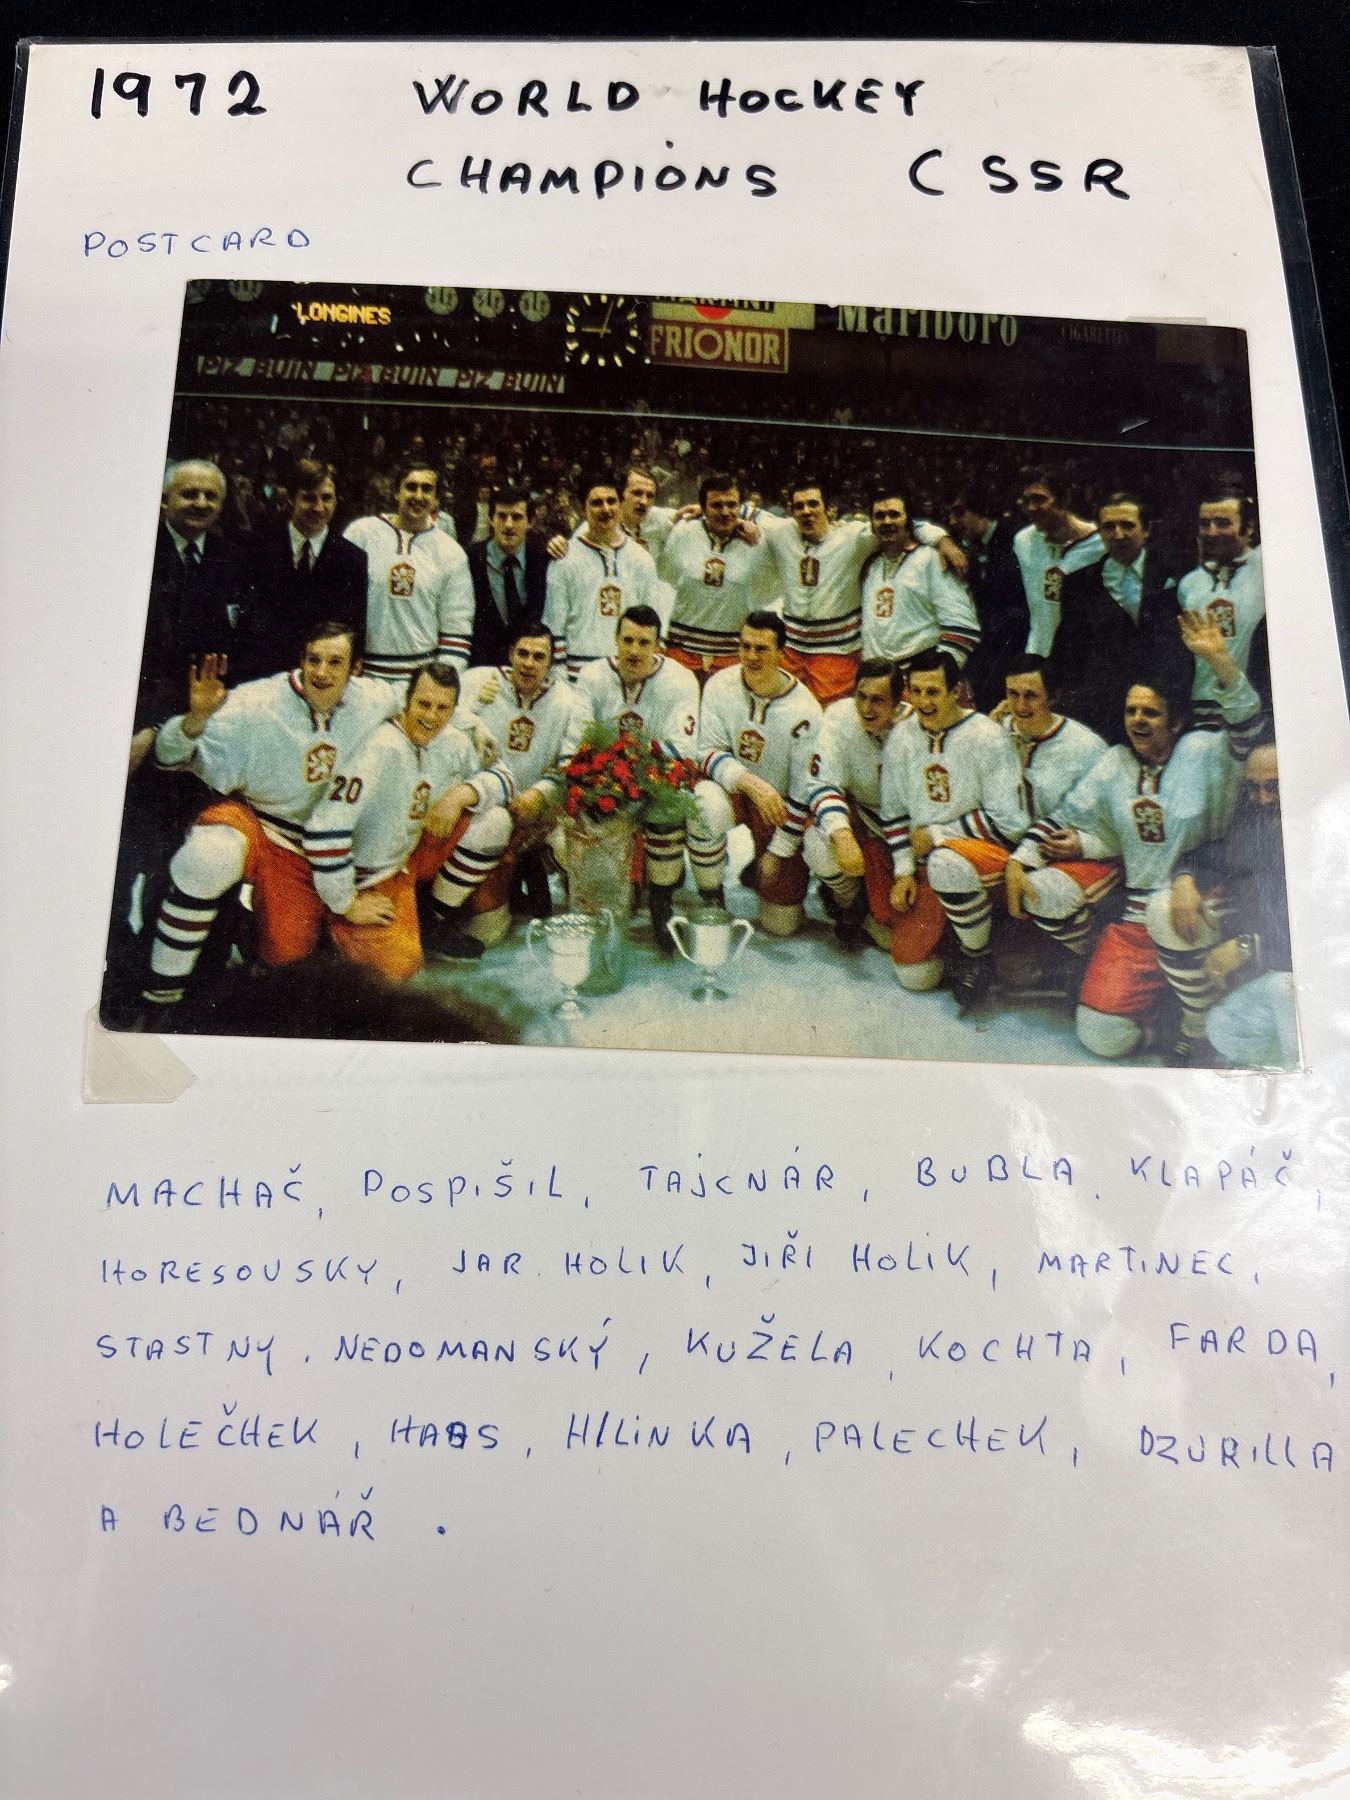 1972 WORLD HOCKEY
CHAMPIONS CSSR
POSTCARD
LONGINES
MARTINI
FRIONOR
Marlboro
CIGARETTES
PIZ BUIN PIZ BUIN PIZ BUIN
20
3
C
6
MACHAČ, POSPIŠIL, TAJCNÁR, BUBLA, KLAPÁČ,
HORESOVSKY, JAR. HOLIK, JIŘI HOLIK, MARTINEC,
STASTNY, NEDOMANSKÝ, KUŽELA, KOCHTA, FARDA,
HOLEČHEK, HAAS, HLINKA, PALECHEK, DZURILLA
A BEDNÁŘ.